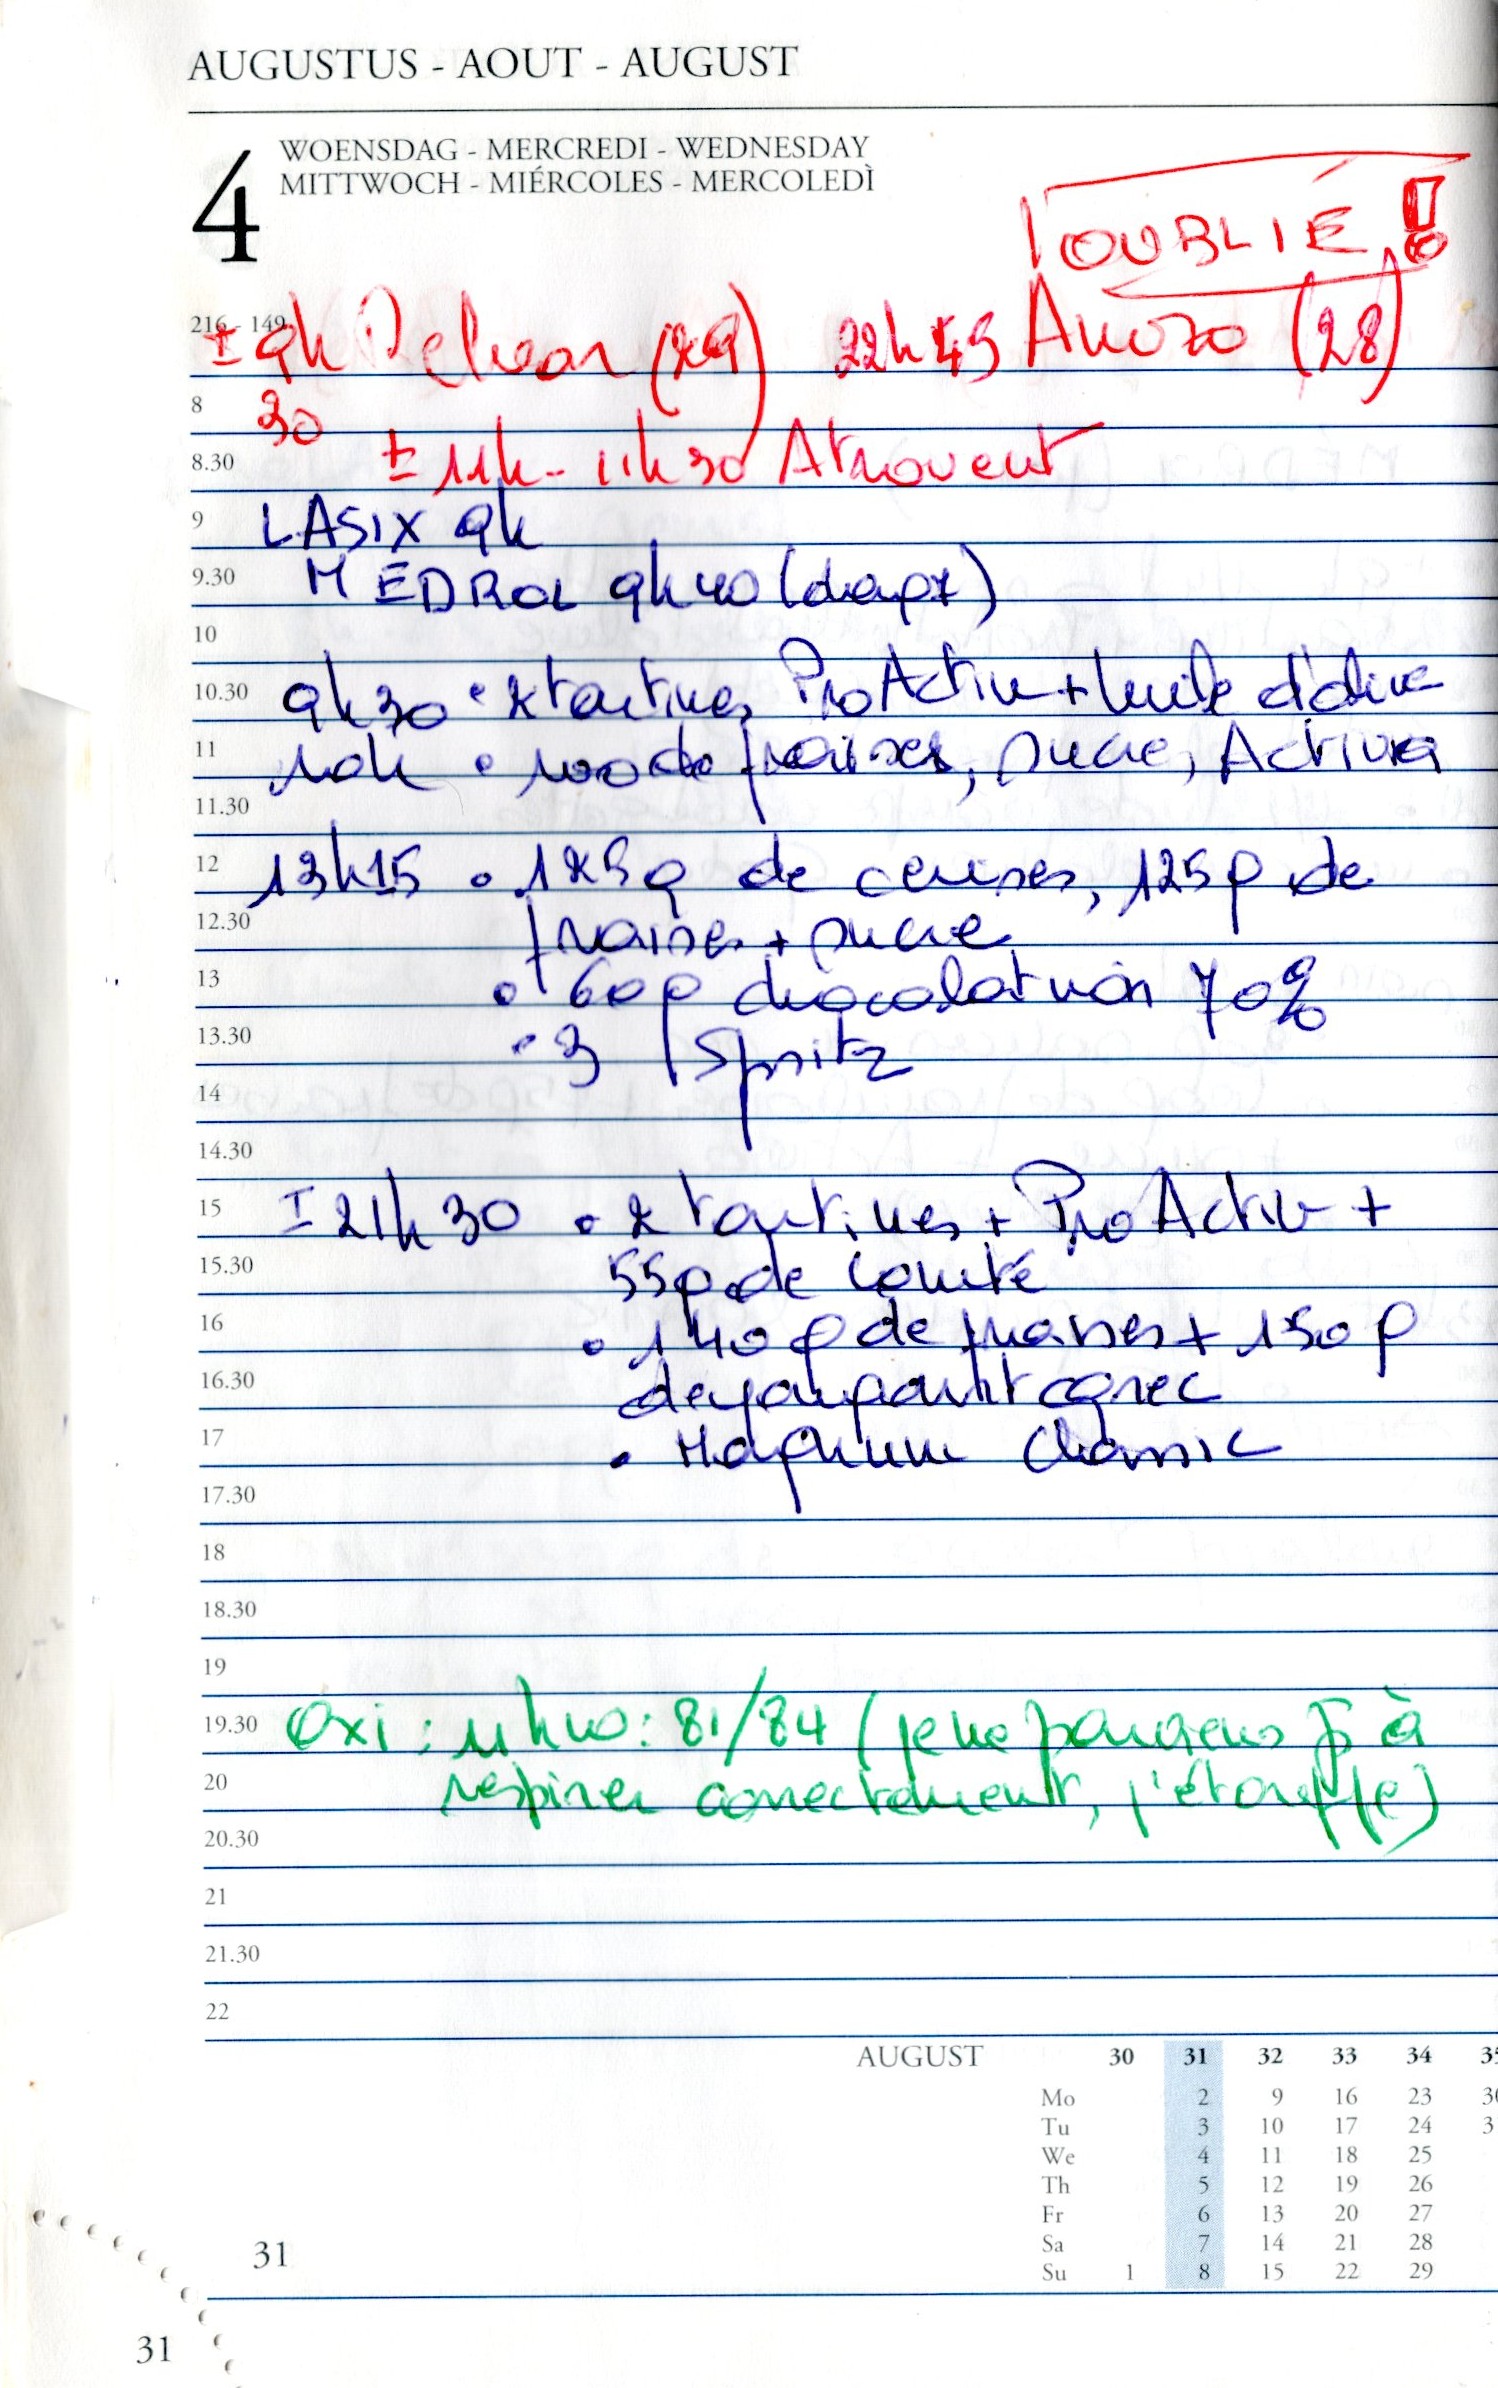 AUGUSTUS - AOUT - AUGUST
4
WOENSDAG - MERCREDI - WEDNESDAY
MITTWOCH - MIÉRCOLES - MERCOLEDÌ
OUBLIÉ !
216 - 149
± 9h (29) 22h45 Anoro (28)
8
30
8.30
± 11h - 11h30 Atrovent
9 LASIX 9h
9.30 MEDROL 9h40
10
10.30 9h30 • 2 tartines ProActiv + huile d'olive
11 10h • 100 de fraises, sucre, Activia
11.30
12 13h15 • 125g de cerises, 125g de
12.30 fraises + sucre
13 • 60g chocolat noir 70%
13.30 • 3 Spritz
14
14.30
15 ± 21h30 • 2 tartines + ProActiv +
15.30 55g de comté
16 • 140g de fraises + 150g
16.30 de yaourt grec
17 • Magnum Classic
17.30
18
18.30
19
19.30 Oxi : 11h10 : 81/84 (je ne parviens à
20 respirer correctement, j'étouffe)
20.30
21
21.30
22
AUGUST 30 31 32 33 34
Mo 2 9 16 23 30
Tu 3 10 17 24 3
We 4 11 18 25
Th 5 12 19 26
Fr 6 13 20 27
Sa 7 14 21 28
Su 1 8 15 22 29
31
31